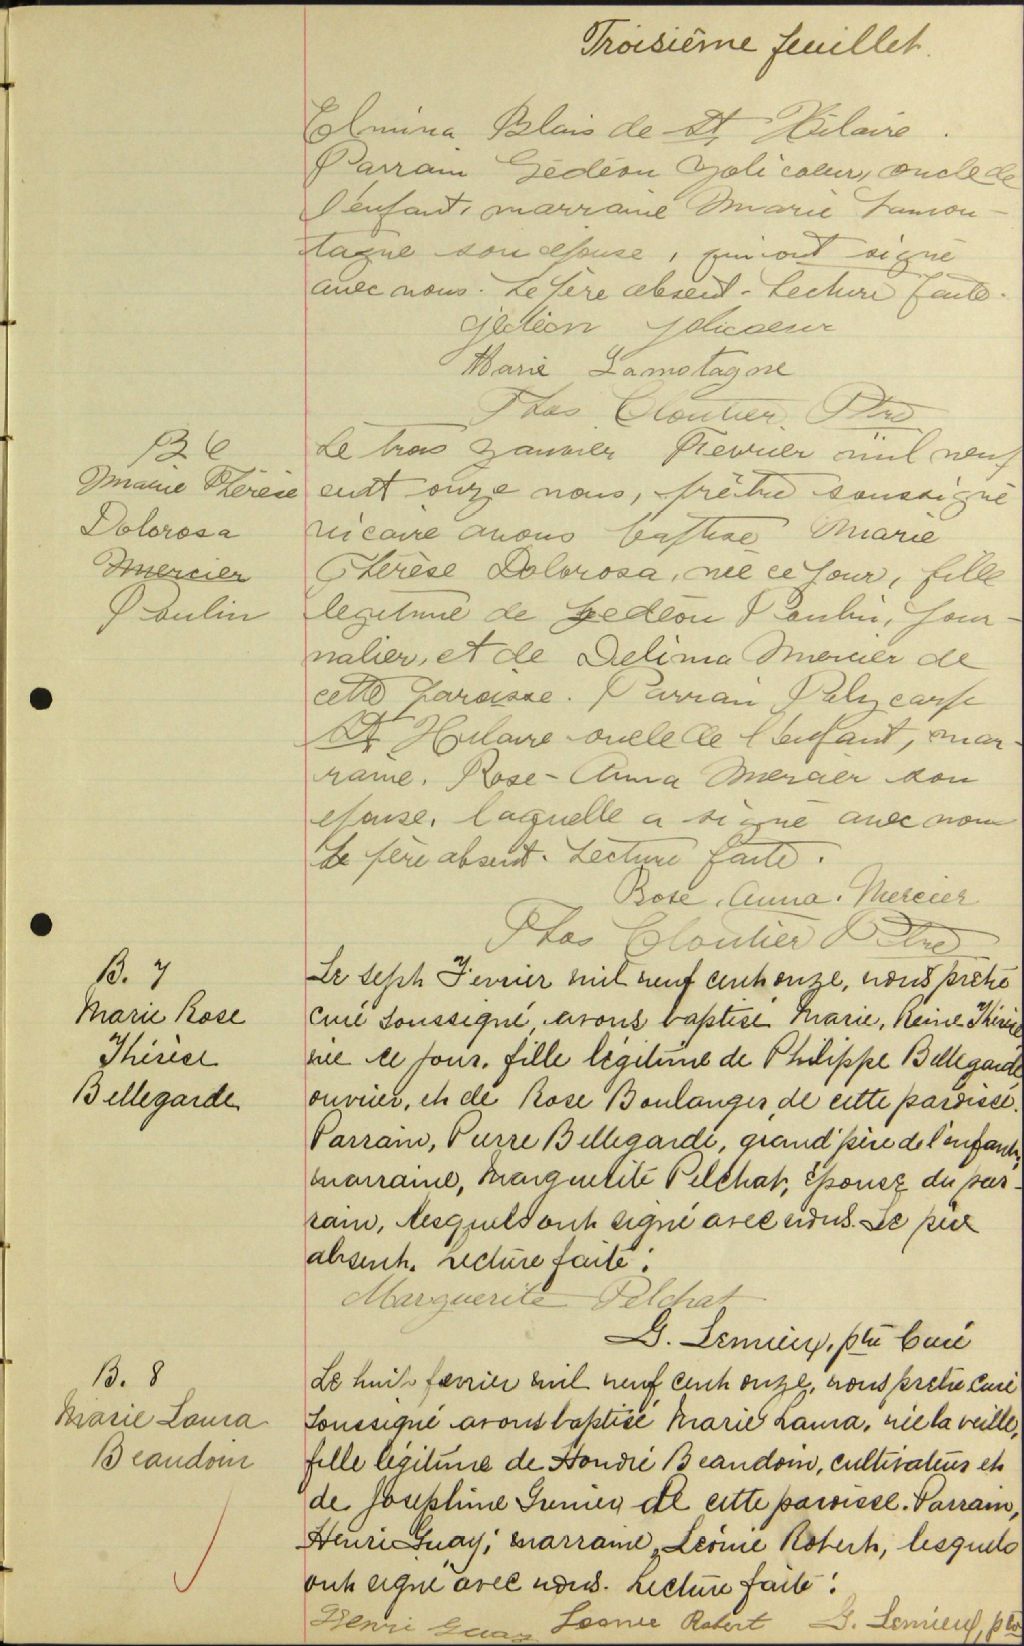 Troisième feuillet.
Elmina Blais de St Hilaire.
Parrain Gédéon Jolicoeur, oncle de
l'enfant, marraine Marie Lamon-
tagne son épouse, qui ont signé
avec nous. Le père absent. Lecture faite.
Gédéon Jolicoeur
Marie Lamotagne
Thos Cloutier Ptre
B 6
Marie Thérèse
Dolorosa
Mercier
Poulin
Le trois Janvier Fevrier mil neuf
cent onze nous, prêtre soussigné
vicaire avons baptisé Marie
Thérèse Dolorosa, née ce jour, fille
legitime de Gedéon Poulin, jour-
nalier, et de Delima Mercier de
cette paroisse. Parrain Polycarpe
St Hilaire oncle de l'enfant, mar-
raine, Rose-Anna Mercier son
epouse, laquelle a signé avec nous
Le père absent. Lecture faite.
Rose. Anna. Mercier
Thos Cloutier Ptre
B. 7
Marie Rose
Thérèse
Bellegarde
Le sept Fevrier mil neuf cent onze, nous prêtre
curé soussigné, avons baptisé Marie, Reine Thérèse
née ce jour, fille légitime de Philippe Bellegarde
ouvrier, et de Rose Boulanger, de cette paroisse.
Parrain, Pierre Bellegarde, grand'père de l'enfant,
marraine, Marguerite Pelchat, épouse du par-
rain, lesquels ont signé avec nous. Le père
absent. Lecture faite.
Marguerite Pelchat
G. Lemieux, ptre Curé
B. 8
Marie Laura
Beaudoin
Le huit fevrier mil neuf cent onze, nous pretre curé
soussigné avons baptisé Marie Laura, née la veille,
fille légitime de Honoré Beaudoin, cultivateur et
de Josephine Grenier de cette paroisse. Parrain,
Henri Guay; marraine, Léonie Robert, lesquels
ont signé avec nous. Lecture faite.
Henri Guay Leonie Robert G. Lemieux, ptre